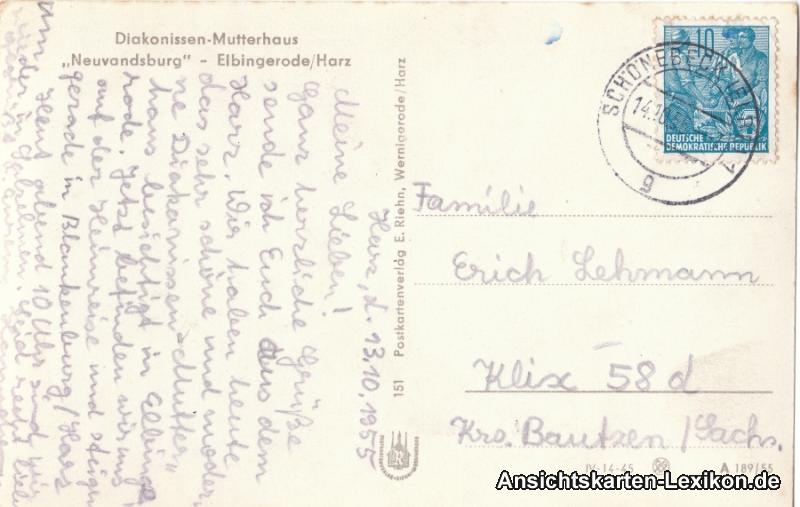 Diakonissen-Mutterhaus
„Neuvandsburg" - Elbingerode/Harz
Harz, d. 13.10.1955
Meine Lieben!
Ganz herzliche Grüße
sende ich Euch aus dem
Harz. Wir haben heute
das sehr schöne und moder-
ne Diakonissen-Mutter-
haus besichtigt in Elbinge-
rode. Jetzt befinden wir uns
auf der Heimreise und steigen
gerade in Blankenburg/Harz
um. Heut abend 10 Uhr sind wir
wieder in
151 Postkartenverlag E. Riehn, Wernigerode/Harz
10
DEUTSCHE
DEMOKRATISCHE REPUBLIK
SCHÖNEBECK
14.10
g
Familie
Erich Lehmann
Klix 58 d
Krs. Bautzen/Sachs.
A 189/55
Ansichtskarten-Lexikon.de